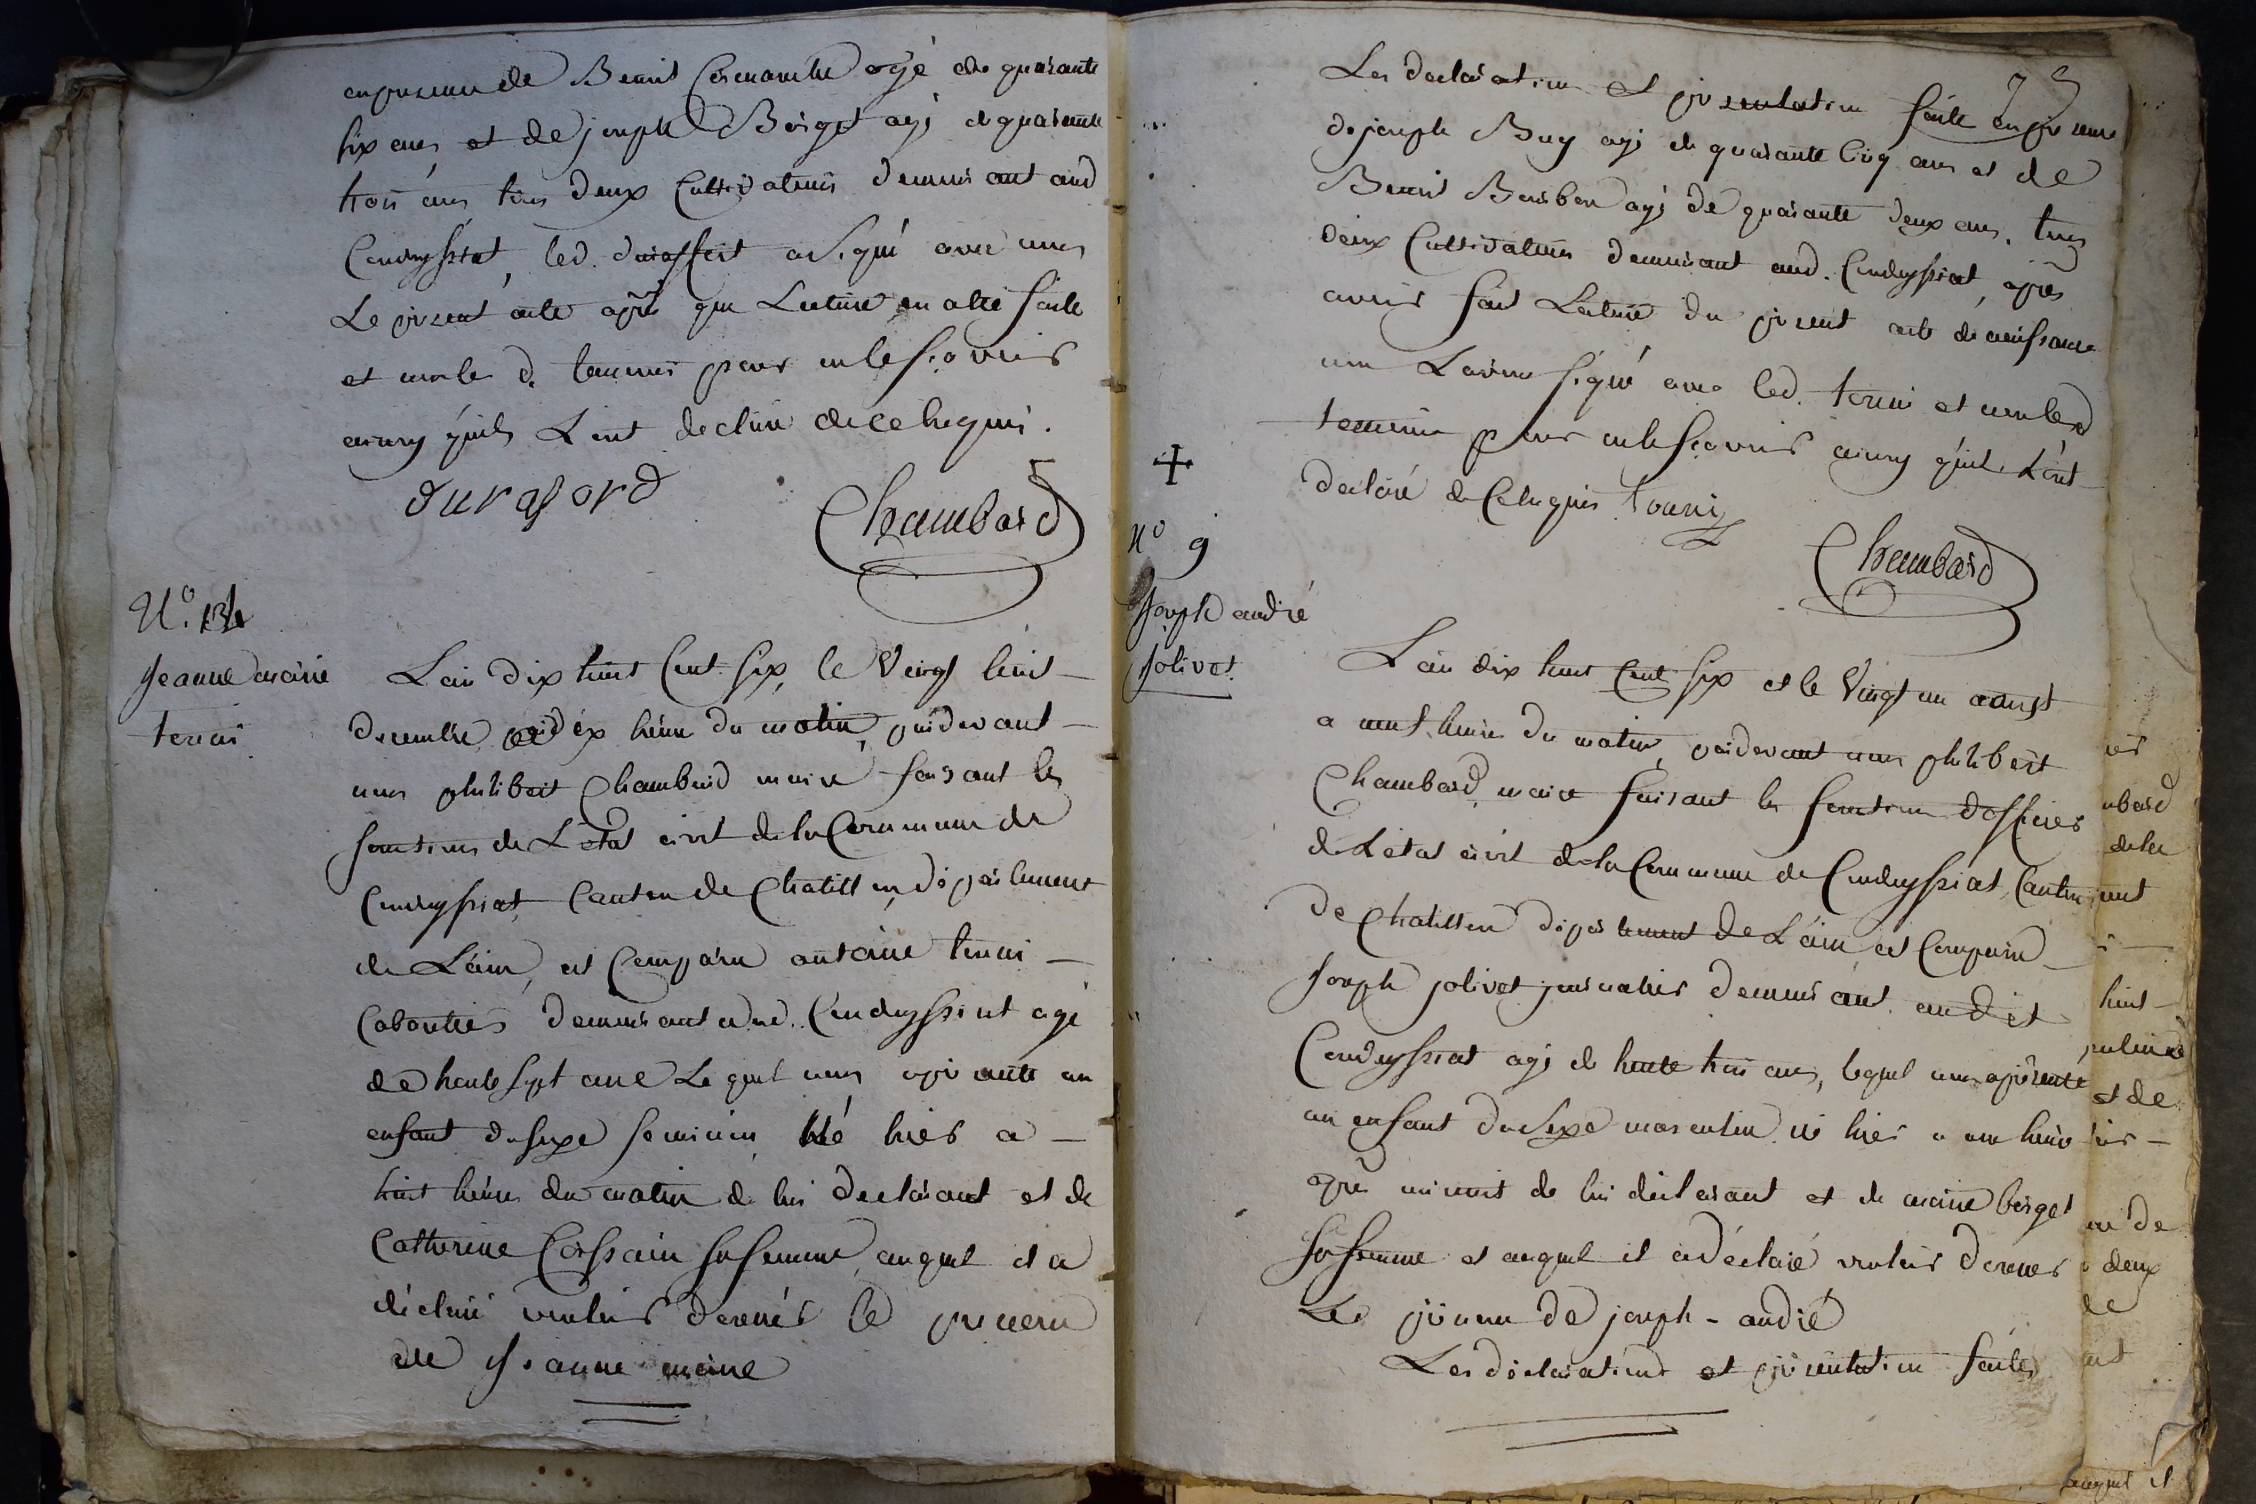 en presence de Benoit agé de quarante
six ans et de joseph Borget agé de quarante
trois ans tous deux Cultivateurs demeurant aud
Condeyssiat, led. duraffort a signé avec nous
Le present acte apres que Lecture en a ete faite
et non les d. temoins pour ne le scavoir
ainsy quils L'ont declaré de ce requis.
duraford
Chambard
N.o
Jeanne marie
terrai
L'an dix huit Cent six, le Vingt huit
decembre a dix heure du matin, pardevant
nous philibert Chambard maire faisant les
fonctions de L'état civil de la Commune de
Condeyssiat, Canton de Chatillon, département
de L'ain, est Comparu antoine terrai
Cabartier demeurant aud. Condeyssiat agé
de trente sept ans Le quel nous a presenté un
enfant du sexe feminin Né hier a
huit heures du matin de lui declarant et de
Catherine Corssain sa femme, auquel il a
déclaré vouloir donner le prenom
de Jeanne marie
73
Les declaration et presentation faite en presence
de joseph Buy agé de quarante Cinq ans et de
Benoit Bourbon agé de quarante deux ans, tous
deux Cultivateurs demeurant aud. Condeyssiat, apres
avoir fait Lecture du present acte de naissance
nous L'avons signé avec led. terrai et non led
temoins pour ne le scavoir ainsy quils L'ont
declaré de Ce requis terrai
Chambard
N.o 9
Joseph andré
Jolivet
L'an dix huit Cent six et le Vingt un aoust
a neuf heures du matin, pardevant nous philibert
Chambard, maire faisant les fonction d'officier
de L'état civil de la Commune de Condeyssiat, Canton
de Chatillon département de L'ain est Comparu
Joseph jolivet journalier demeurant audit
Condeyssiat agé de trente trois ans, lequel nous a presenté
un enfant du Sexe masculin né hier a une heure
apres minuit de lui déclarant et de marie borget
sa femme et auquel il a déclaré vouloir donner
Le prenom de joseph - andré
Les déclarations et presentation faites